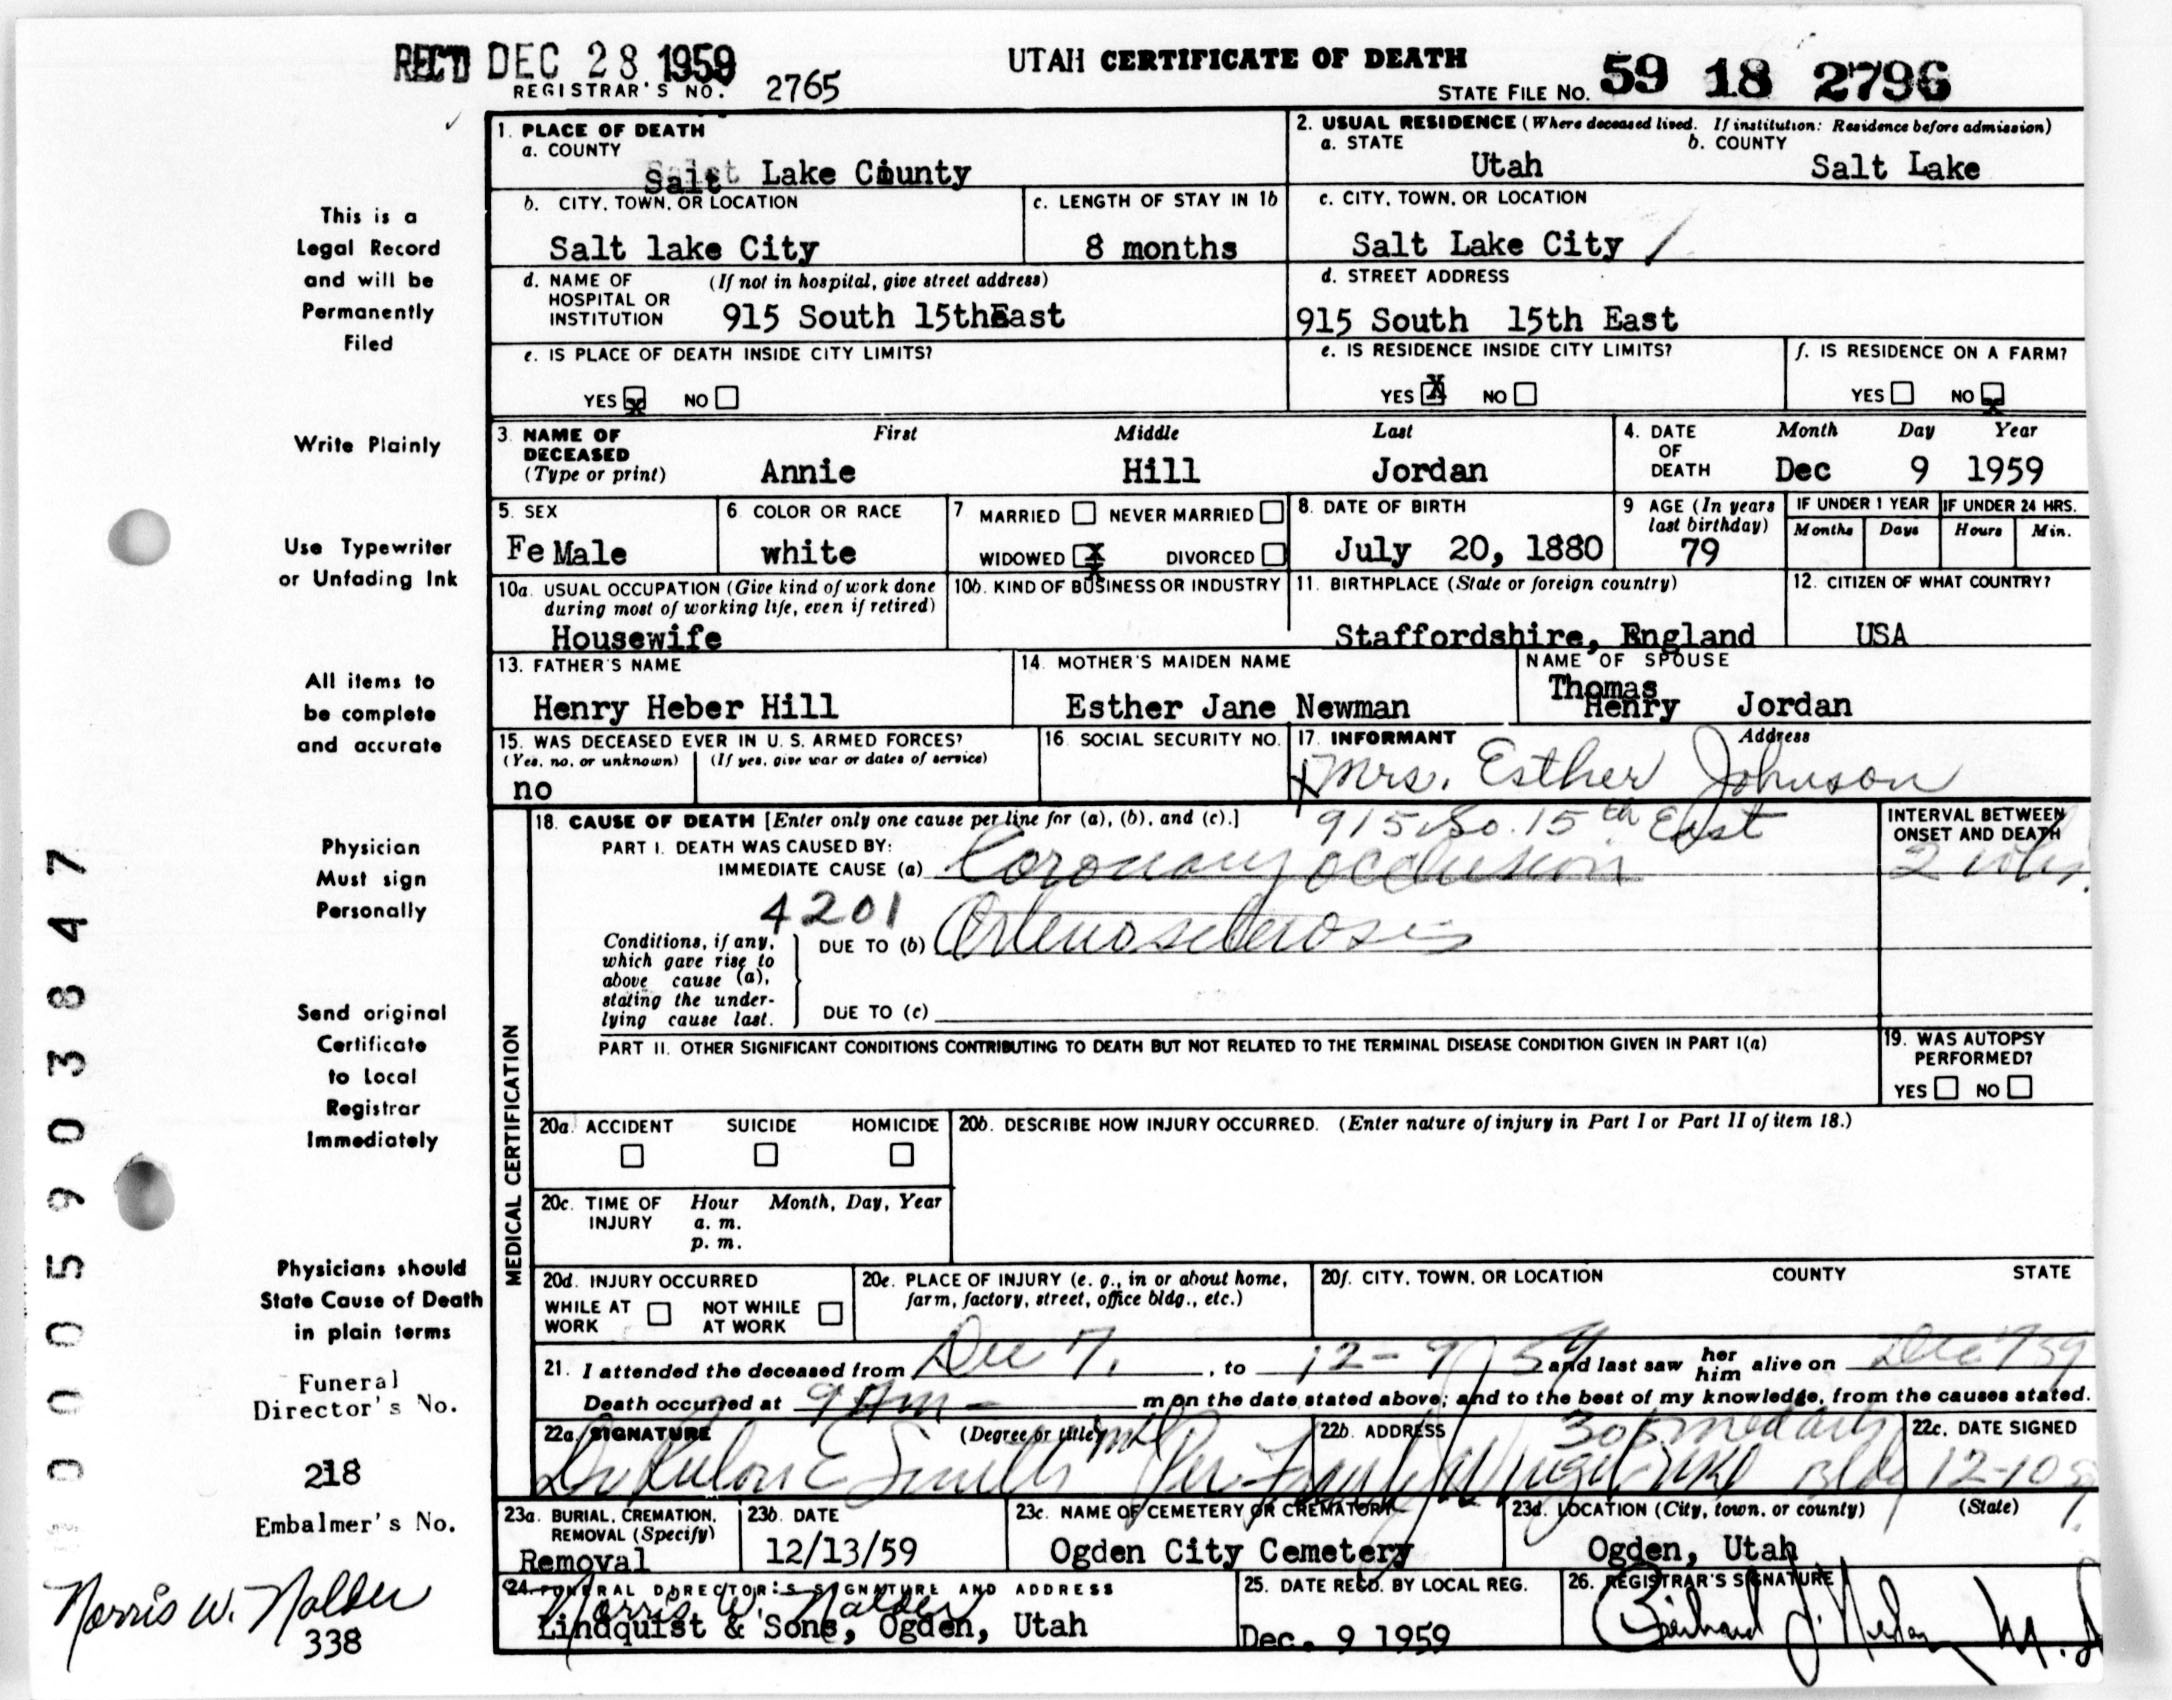 REC'D DEC 28 1959
REGISTRAR'S NO. 2765
UTAH CERTIFICATE OF DEATH
STATE FILE NO. 59 18 2796
1. PLACE OF DEATH
a. COUNTY
Salt Lake County
2. USUAL RESIDENCE (Where deceased lived. If institution: Residence before admission)
a. STATE
Utah
b. COUNTY
Salt Lake
b. CITY, TOWN, OR LOCATION
Salt lake City
c. LENGTH OF STAY IN 1b
8 months
c. CITY, TOWN, OR LOCATION
Salt Lake City
d. NAME OF HOSPITAL OR INSTITUTION (If not in hospital, give street address)
915 South 15thEast
d. STREET ADDRESS
915 South 15th East
e. IS PLACE OF DEATH INSIDE CITY LIMITS?
YES X NO
e. IS RESIDENCE INSIDE CITY LIMITS?
YES X NO
f. IS RESIDENCE ON A FARM?
YES NO X
3. NAME OF DECEASED (Type or print)
First Middle Last
Annie Hill Jordan
4. DATE OF DEATH
Month Day Year
Dec 9 1959
5. SEX
FeMale
6 COLOR OR RACE
white
7 MARRIED NEVER MARRIED
WIDOWED X DIVORCED
8. DATE OF BIRTH
July 20, 1880
9 AGE (In years last birthday)
79
IF UNDER 1 YEAR
Months Days
IF UNDER 24 HRS.
Hours Min.
10a. USUAL OCCUPATION (Give kind of work done during most of working life, even if retired)
Housewife
10b. KIND OF BUSINESS OR INDUSTRY
11. BIRTHPLACE (State or foreign country)
Staffordshire, England
12. CITIZEN OF WHAT COUNTRY?
USA
13. FATHER'S NAME
Henry Heber Hill
14. MOTHER'S MAIDEN NAME
Esther Jane Newman
NAME OF SPOUSE
Thomas
Henry Jordan
15. WAS DECEASED EVER IN U. S. ARMED FORCES?
(Yes, no, or unknown) (If yes, give war or dates of service)
no
16. SOCIAL SECURITY NO.
17. INFORMANT Address
X Mrs. Esther Johnson
915 So. 15th East
MEDICAL CERTIFICATION
18. CAUSE OF DEATH [Enter only one cause per line for (a), (b), and (c).]
INTERVAL BETWEEN ONSET AND DEATH
PART I. DEATH WAS CAUSED BY:
IMMEDIATE CAUSE (a) Coronary occlusion
2 wks.
4201
Conditions, if any, which gave rise to above cause (a), stating the underlying cause last.
DUE TO (b) Arteriosclerosis
DUE TO (c)
PART II. OTHER SIGNIFICANT CONDITIONS CONTRIBUTING TO DEATH BUT NOT RELATED TO THE TERMINAL DISEASE CONDITION GIVEN IN PART I(a)
19. WAS AUTOPSY PERFORMED?
YES NO
20a. ACCIDENT SUICIDE HOMICIDE
20b. DESCRIBE HOW INJURY OCCURRED. (Enter nature of injury in Part I or Part II of item 18.)
20c. TIME OF INJURY Hour Month, Day, Year
a. m.
p. m.
20d. INJURY OCCURRED
WHILE AT WORK NOT WHILE AT WORK
20e. PLACE OF INJURY (e. g., in or about home, farm, factory, street, office bldg., etc.)
20f. CITY, TOWN, OR LOCATION COUNTY STATE
21. I attended the deceased from Dec 7, , to 12-9/59 and last saw her him alive on Dec 7 59
Death occurred at 9 Am m on the date stated above; and to the best of my knowledge, from the causes stated.
22a. SIGNATURE (Degree or title)
E Smith
22b. ADDRESS
Bldg
22c. DATE SIGNED
12-10 59
23a. BURIAL, CREMATION, REMOVAL (Specify)
Removal
23b. DATE
12/13/59
23c. NAME OF CEMETERY OR CREMATORY
Ogden City Cemetery
23d. LOCATION (City, town, or county) (State)
Ogden, Utah
24. FUNERAL DIRECTOR'S SIGNATURE AND ADDRESS
Norris W. Nalder
Lindquist & Sons, Ogden, Utah
25. DATE RECD. BY LOCAL REG.
Dec. 9 1959
26. REGISTRAR'S SIGNATURE
M.D
This is a
Legal Record
and will be
Permanently
Filed
Write Plainly
Use Typewriter
or Unfading Ink
All items to
be complete
and accurate
Physician
Must sign
Personally
Send original
Certificate
to Local
Registrar
Immediately
Physicians should
State Cause of Death
in plain terms
Funeral
Director's No.
218
Embalmer's No.
Norris W. Nalder
338
0005903847